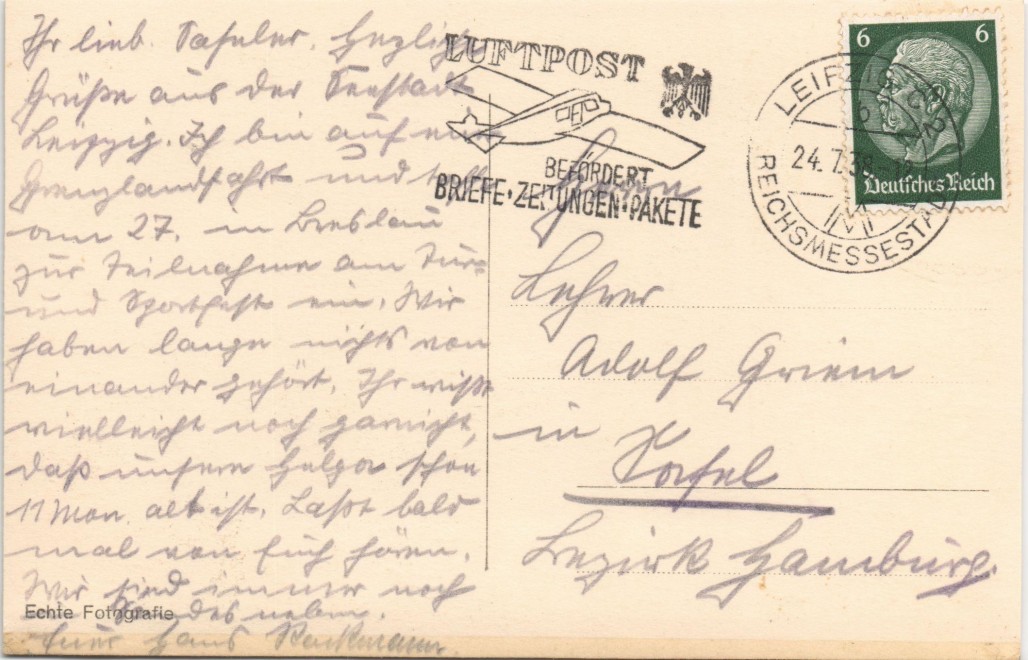 Ihr lieb. Tafeler. Herzliche
Grüße aus der Seestadt
Leipzig. Ich bin auf einer
Grenzlandfahrt und treffe
am 27. in Breslau
zur Teilnahme am Turn-
und Sportfest ein. Wir
haben lange nichts von
einander gehört. Ihr wißt
vielleicht noch garnicht,
daß unsere Helga schon
11 Mon. alt ist. Laßt bald
mal von Euch hören.
Wir sind immer noch
Echte Fotografie
Euer Hans
LUFTPOST
BEFÖRDERT
BRIEFE·ZEITUNGEN·PAKETE
LEIPZIG C2
24.7.38
REICHSMESSESTADT
6 6
Deutsches Reich
Herrn
Lehrer
Adolf Griem
in Tofel
Bezirk Hamburg.